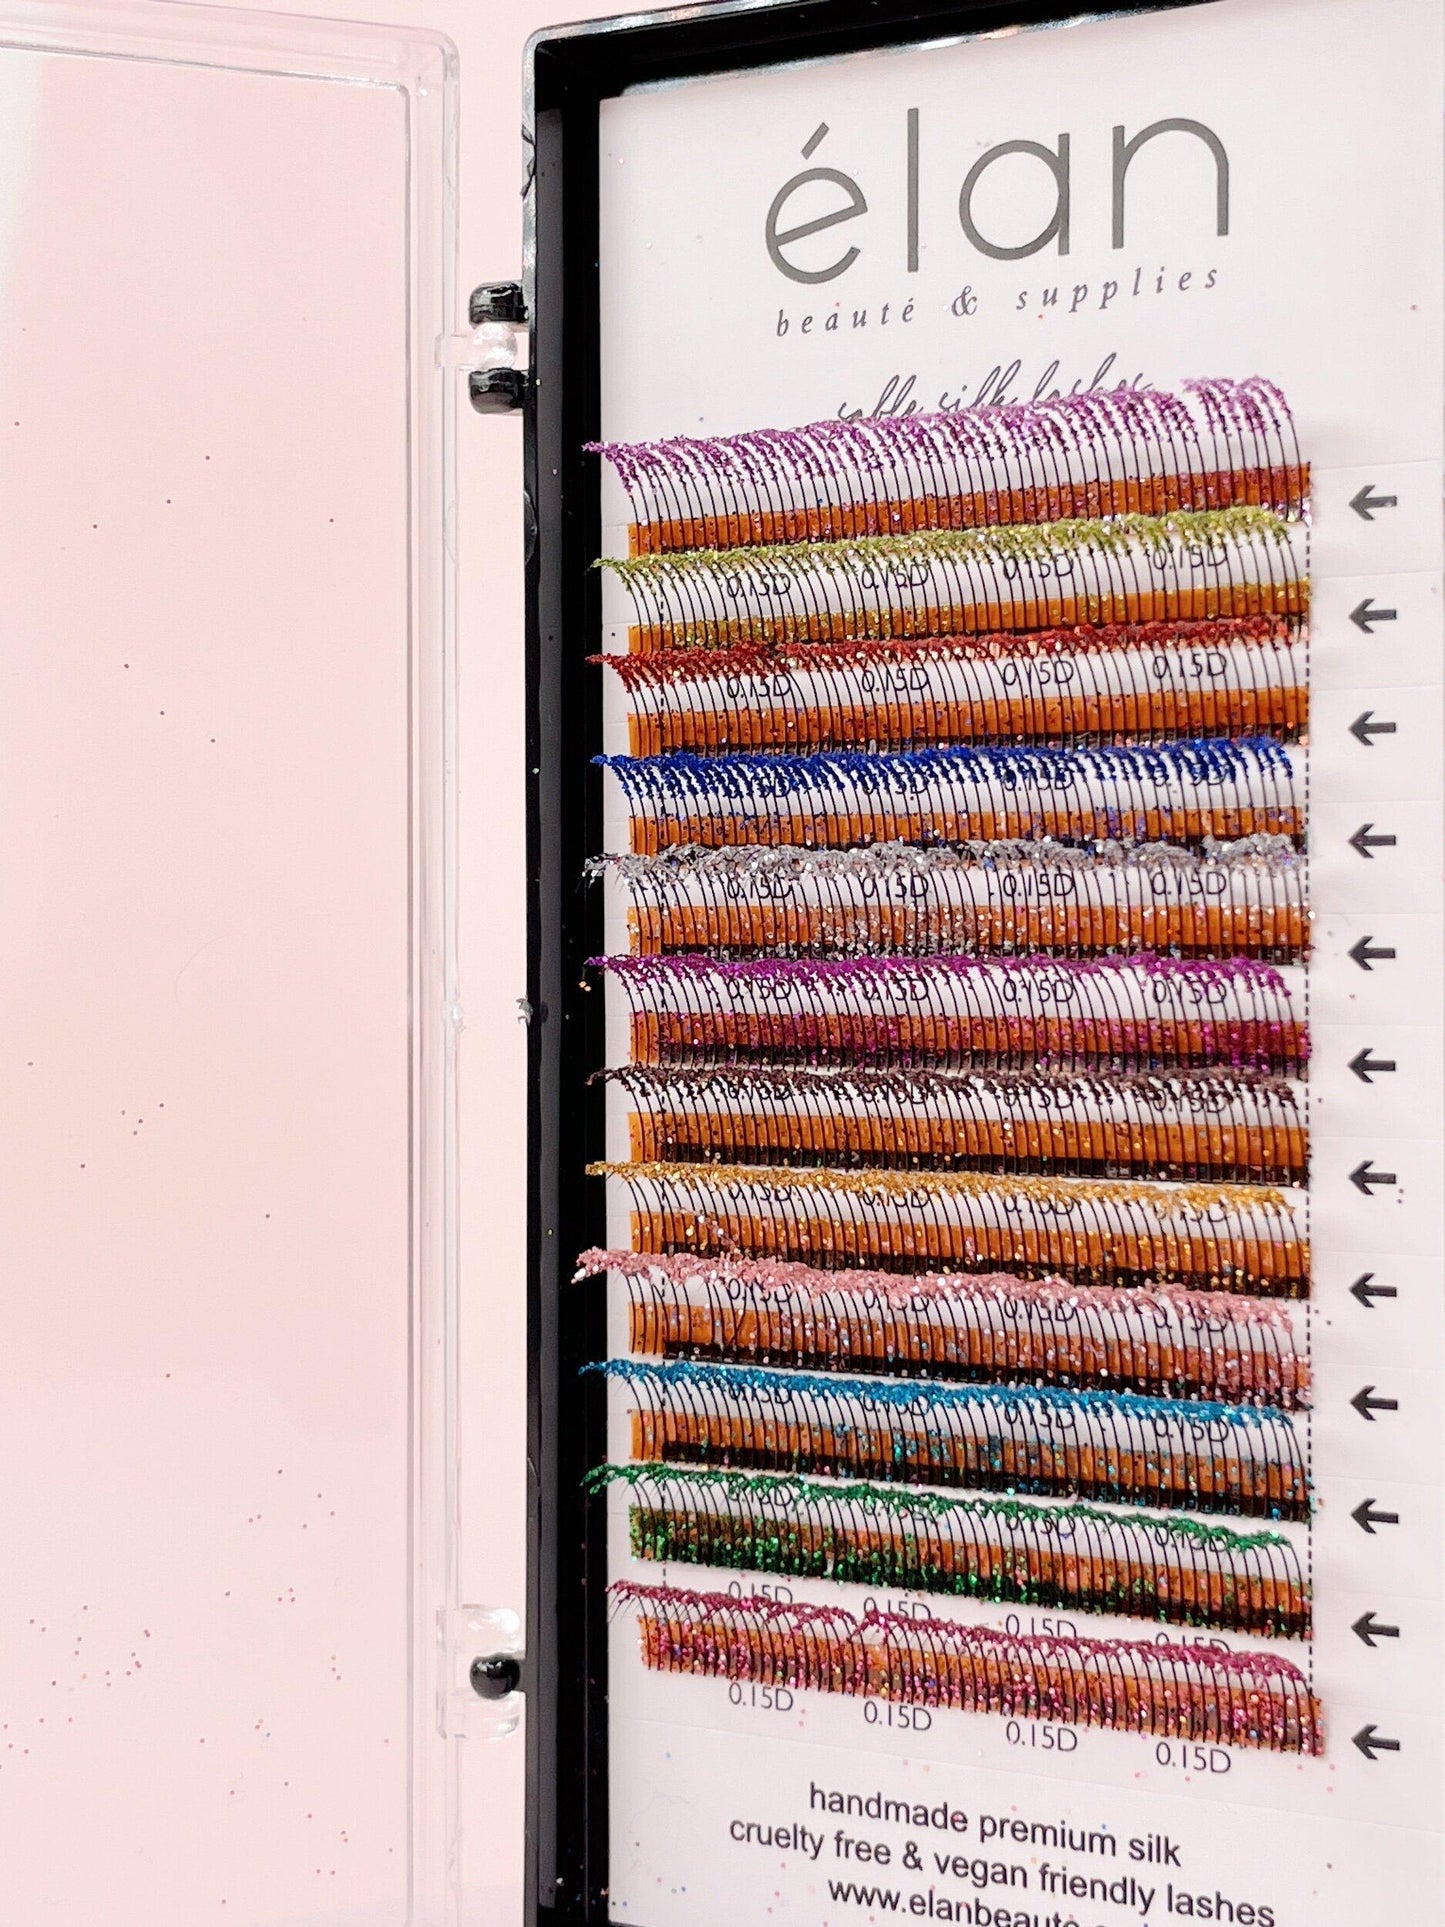 élan
beauté & supplies
sable silk lashes
0.15D 0.15D 0.15D 0.15D
0.15D 0.15D 0.15D 0.15D
0.15D 0.15D 0.15D 0.15D
0.15D 0.15D 0.15D 0.15D
0.15D 0.15D 0.15D 0.15D
0.15D 0.15D 0.15D 0.15D
0.15D 0.15D 0.15D 0.15D
0.15D 0.15D 0.15D 0.15D
0.15D 0.15D 0.15D 0.15D
0.15D 0.15D 0.15D 0.15D
0.15D 0.15D 0.15D 0.15D
0.15D 0.15D 0.15D 0.15D
handmade premium silk
cruelty free & vegan friendly lashes